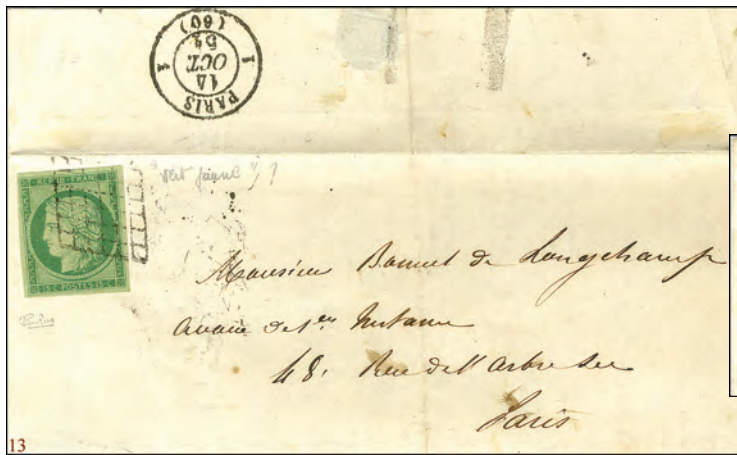 PARIS
14
OCT.
(60)
REPUB FRANC
15·C·POSTES·15·C
Monsieur de Longchamp
Avoué de 1ère Instance
48, Rue de l'Arbre Sec
Paris
13